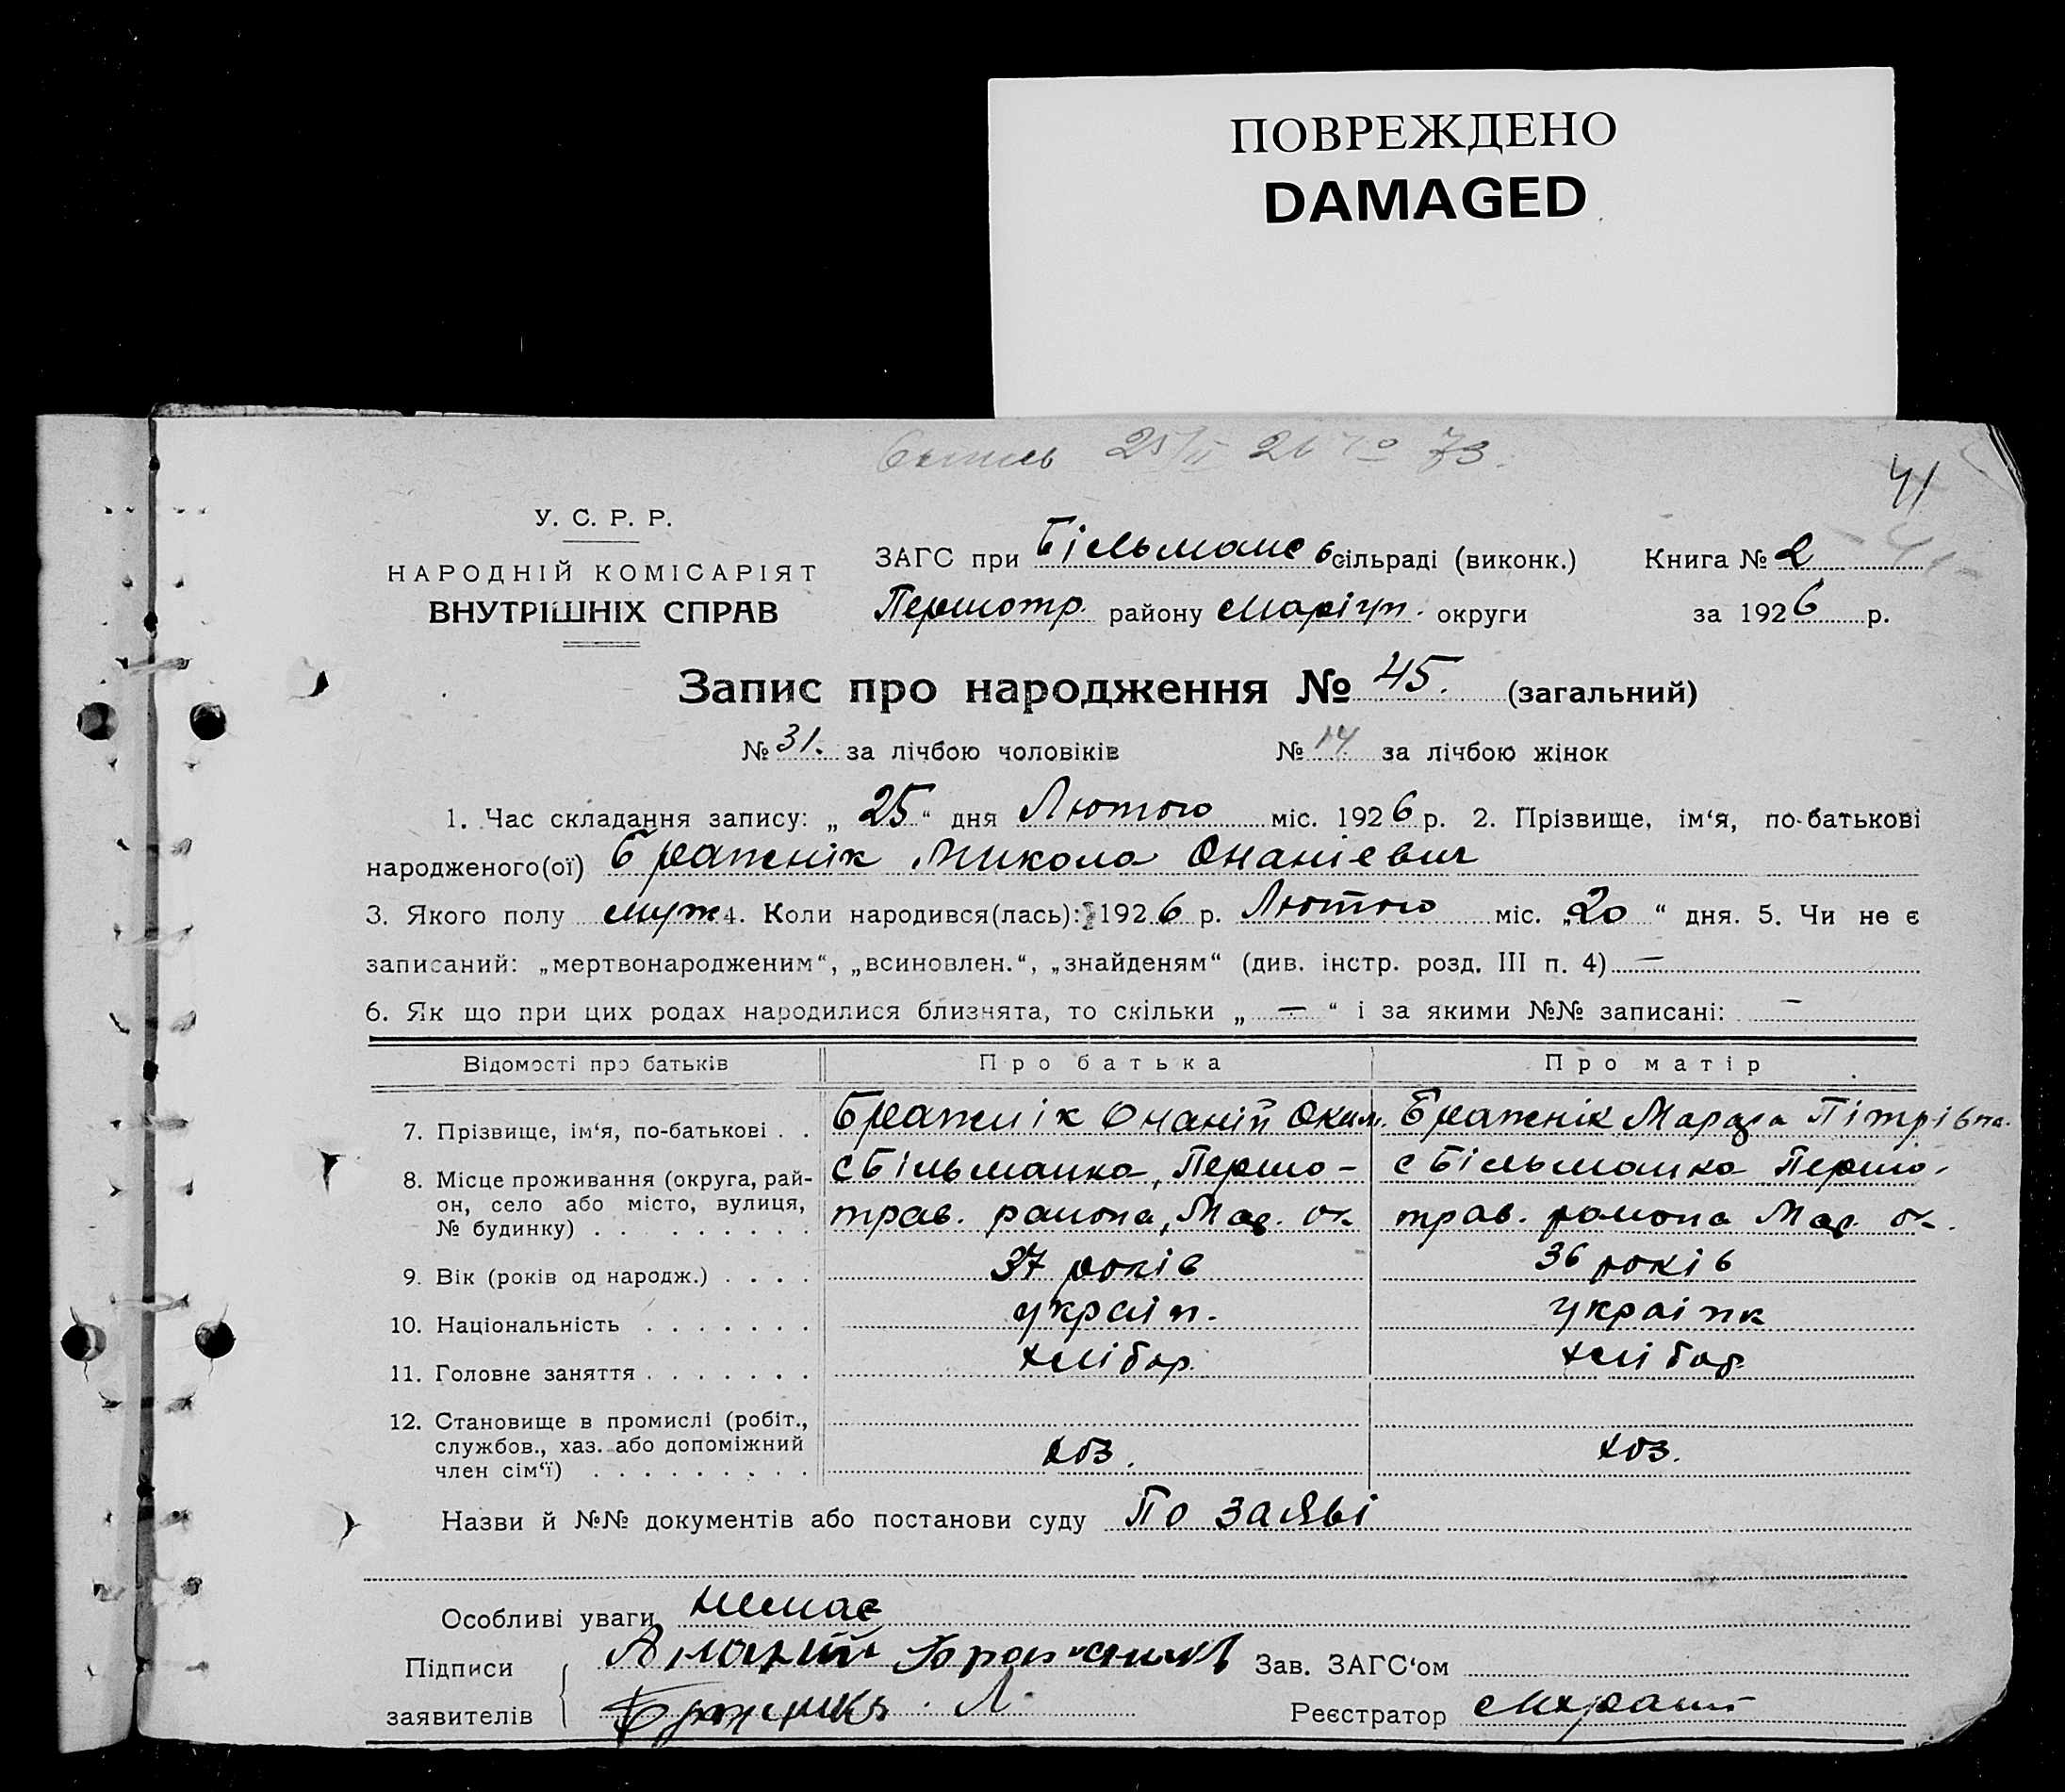 ПОВРЕЖДЕНО
DAMAGED
25/II 26 73.
41
У. С. Р. Р.
НАРОДНІЙ КОМІСАРІЯТ
ВНУТРІШНІХ СПРАВ
ЗАГС при Більманс в сільраді (виконк.) Книга № 2
Першотр. району Маріуп. округи за 1926 р.
Запис про народження № 45. (загальний)
№ 31. за лічбою чоловіків № 14 за лічбою жінок
1. Час складання запису: „ 25 “ дня Лютого міс. 1926 р. 2. Прізвище, ім‘я, по-батькові
народженого(ої) Бражнік Микола Онаніевич
3. Якого полу муж 4. Коли народився(лась): 1926 р. Лютого міс. „20 “ дня. 5. Чи не є
записаний: „мертвонародженим“, „всиновлен.“, „знайденям“ (див. інстр. розд. III п. 4) —
6. Як що при цих родах народилися близнята, то скільки „ — “ і за якими №№ записані: —
Відомості про батьків Про батька Про матір
7. Прізвище, ім‘я, по-батькові . . Бражнік Онаній Аким. Бражнік Марфа Пітрівна.
8. Місце проживання (округа, рай- с Більманка, Першо- с Більманка Першо-
он, село або місто, вулиця,
№ будинку) . . . . . . . . . трав. района, Мар. ок. трав. района Мар. ок.
9. Вік (років од народж.) . . . . 37 років 36 років
10. Національність . . . . . . . україн. українк
11. Головне заняття . . . . . . . хлібор. хлібор.
12. Становище в промислі (робіт.,
службов., хаз. або допоміжний
член сім‘ї) . . . . . . . . . хоз. хоз.
Назви й №№ документів або постанови суду По заяві
Особливі уваги немає
Підписи Ананий Бражникъ Зав. ЗАГС‘ом
заявителів Бражникъ. Л. Реєстратор